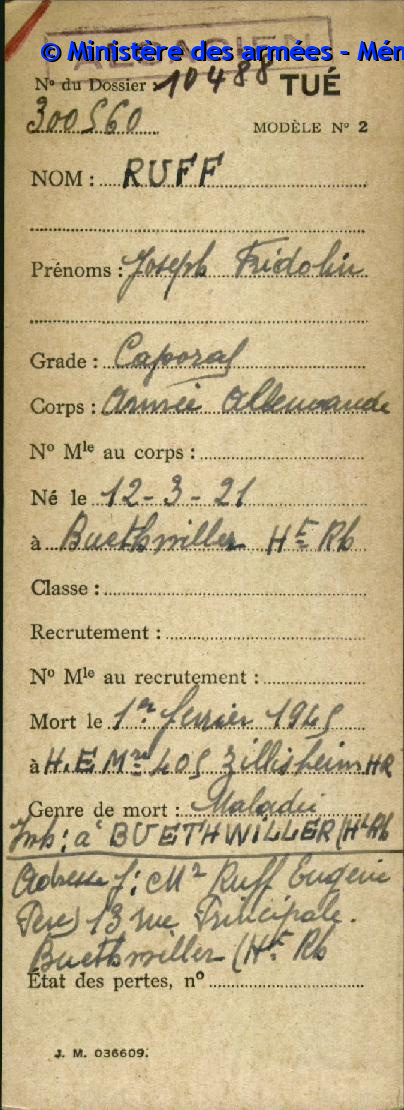 ALSACIEN
© Ministère des armées - Mém
N° du Dossier : 10488 TUÉ
300560
MODÈLE N° 2
NOM : RUFF
Prénoms : Joseph Fridolin
Grade : Caporal
Corps : Armée Allemande
N° Mle au corps :
Né le 12-3-21
à Buethwiller Ht Rh
Classe :
Recrutement :
N° Mle au recrutement :
Mort le 1er fevrier 1945
à H.E Mre 405 Zillisheim HR
Genre de mort : Maladie
Inh : à BUETHWILLER (Ht Rh
Adresse f : Mr Ruff Eugène
Père) 13 rue Principale.
Buethwiller (Ht Rh
État des pertes, n°
J. M. 036609.